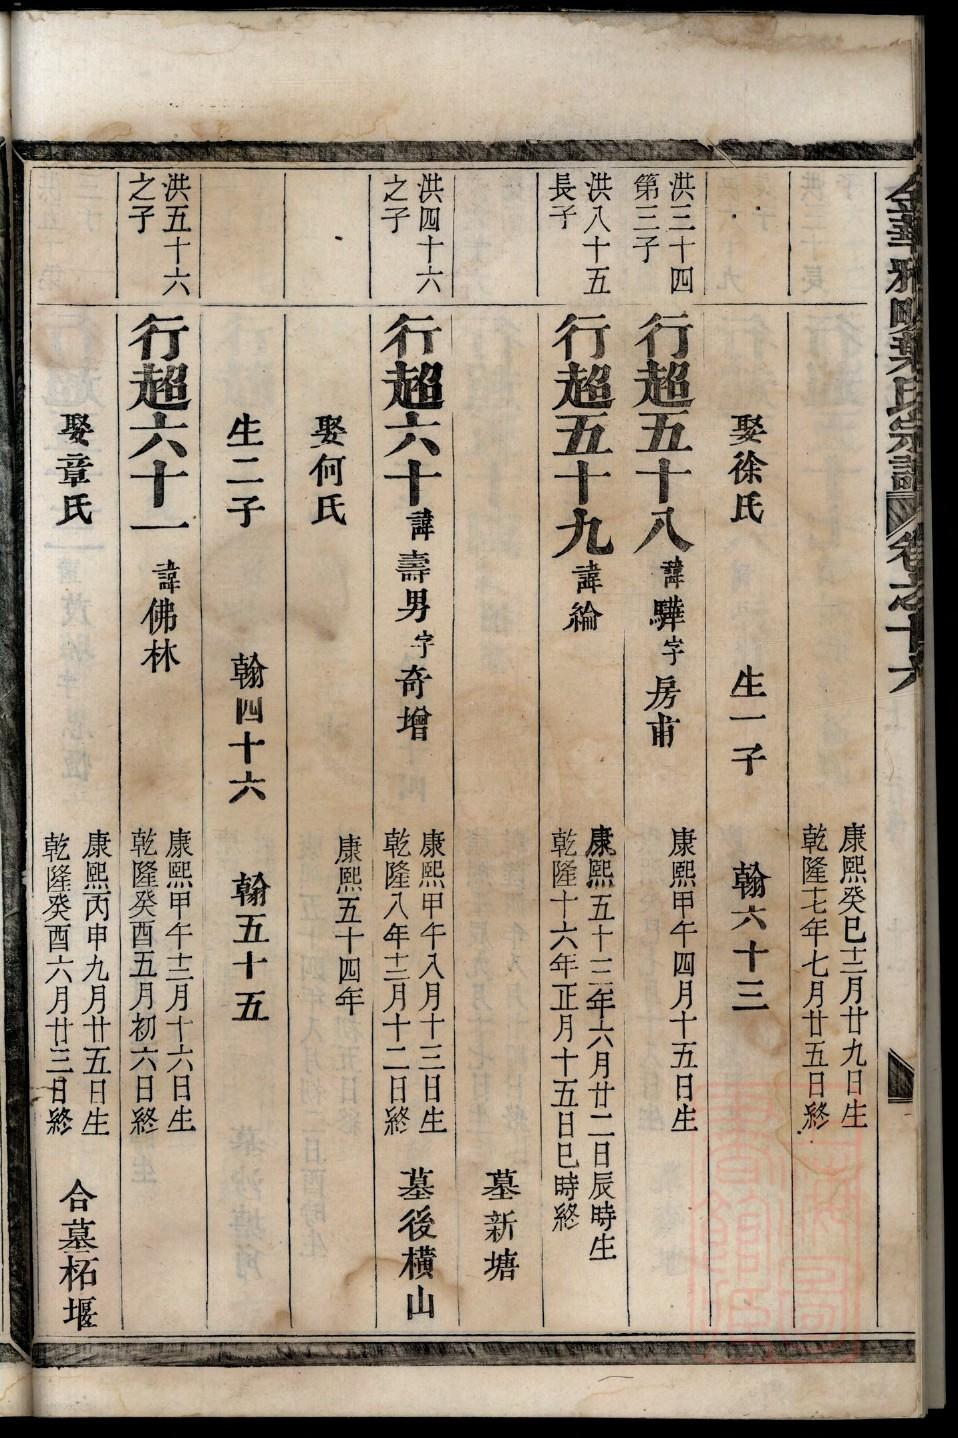 康熙癸巳十二月廿九日生
乾隆十七年七月廿五日終
娶徐氏
生一子
翰六十三
洪三十四
第三子
行超五十八
諱驊字房甫
康熙甲午四月十五日生
洪八十五
長子
行超五十九
諱綸
康熙五十三年六月廿二日辰時生
乾隆十六年正月十五日巳時終
墓新塘
洪四十六
之子
行超六十
諱壽男字奇增
康熙甲午八月十三日生
乾隆八年十二月十二日終
墓後橫山
娶何氏
康熙五十四年
生二子
翰四十六
翰五十五
洪五十六
之子
行超六十一
諱佛林
康熙甲午十二月十六日生
乾隆癸酉五月初六日終
娶章氏
康熙丙申九月廿五日生
乾隆癸酉六月廿三日終
合墓柘堰